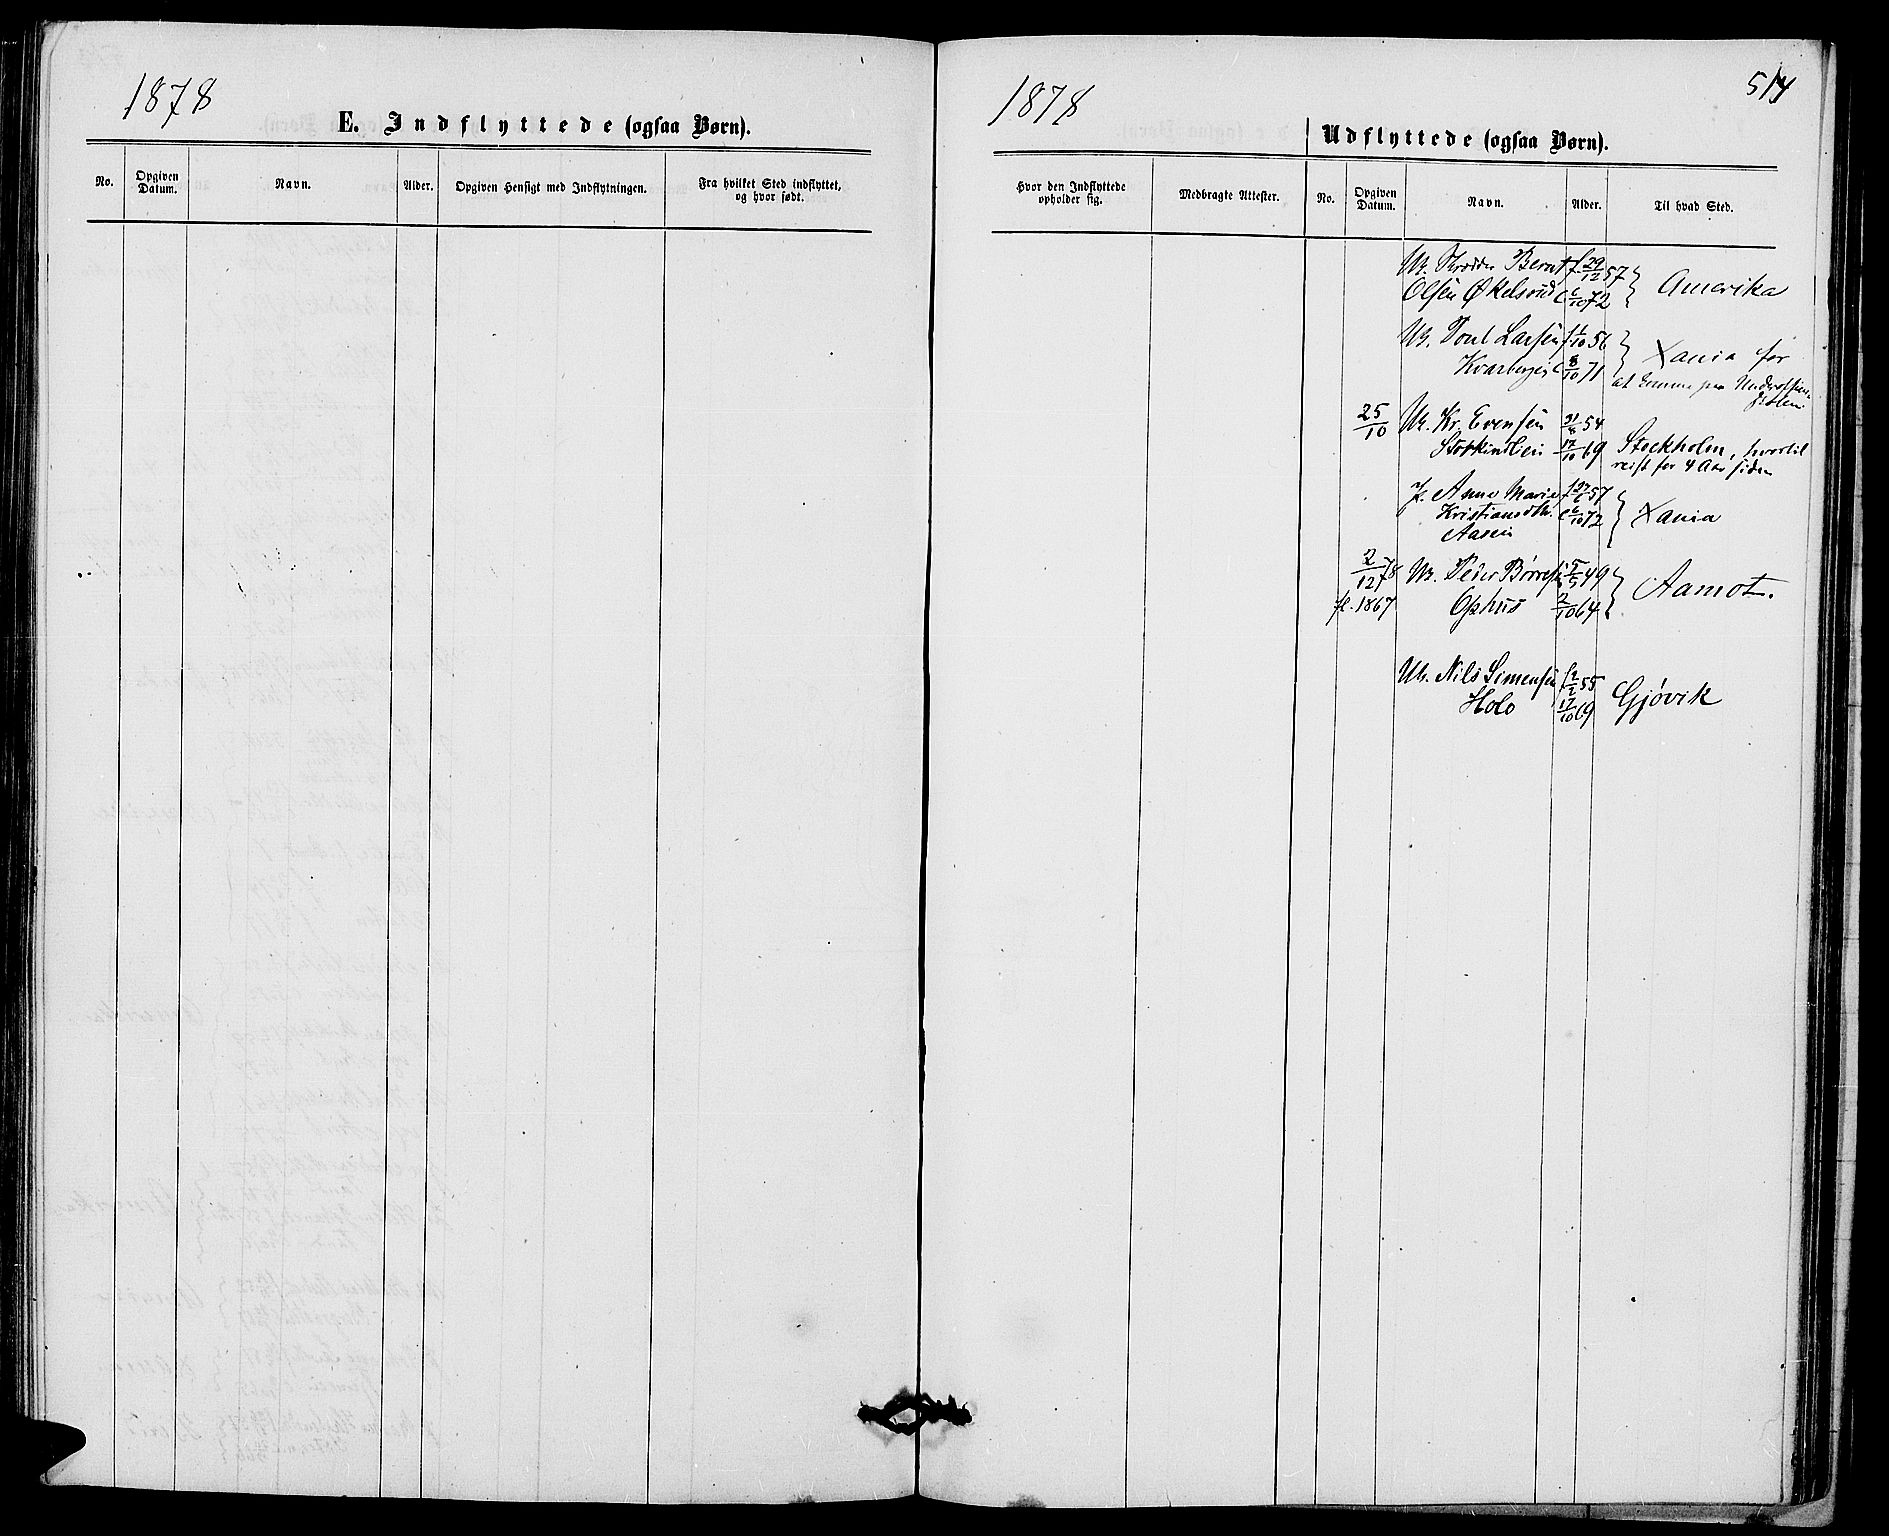 1878
E. Indflyttede (ogsaa Børn).
No.
Opgiven Datum.
Navn.
Alder.
Opgiven Hensigt med Indflytningen.
Fra hvilket Sted indflyttet, og hvor født.
1878
514
Udflyttede (ogsaa Børn).
Hvor den Indflyttede opholder sig.
Medbragte Attester.
No.
Opgiven Datum.
Navn.
Alder.
Til hvad Sted.
Bernt f 29/12 57
Olsen Økelsrud c 6/10 72 } Amerika
Larsen f 1/10 56
c 8/10 71 } Xania for
at komme paa
25/10 Kr. Evensen 31/8 54
17/10 69 Stockholm, hvortil
reist for 4 Aar siden
Anne Marie f 27/6 57
Kristiansdtr. c 6/10 72 } Xania
Aasen
2/12 78 Peder Børresen 5/5 49
fl. 1867 Ophus 2/10 64 } Aamot.
Nils Simensen f 2/2 55
Holo 17/10 69 Gjøvik